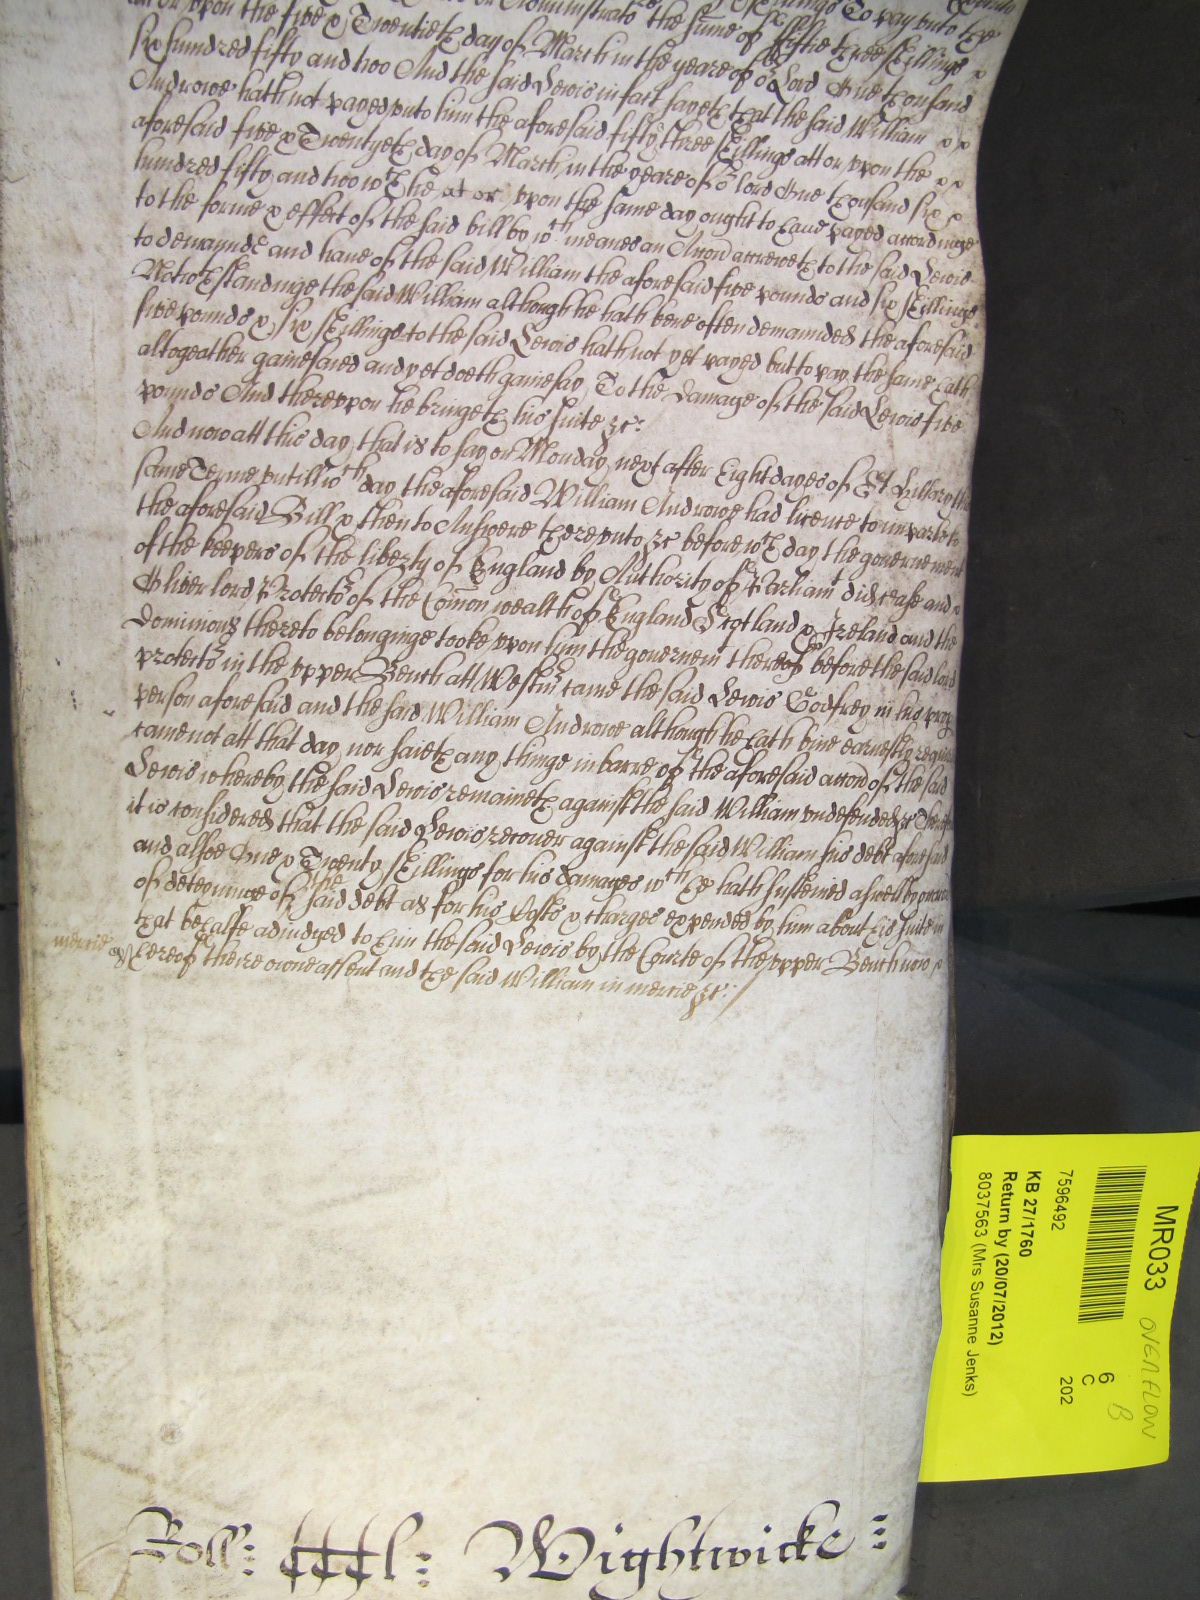 att or upon the five & Twentieth day of March in the yeare of or Lord One thousand
six hundred fifty and two And the said Lewis in fact sayeth that the said William
Androwe hath not payed unto him the aforesaid fifty three shillings att or upon the
aforesaid five & Twentyeth day of March in the yeare of or lord One thousand six
hundred fifty and two wch he at or upon the same day ought to have payed accordinge
to the forme & effect of the said bill by wch meanes an Accon accreweth to the said Lewis
to demaunde and have of the said William the aforesaid five pounds and six shillings
Notwthstandinge the said William although he hath bene often demaunded the aforesaid
five pounds & six shillings to the said Lewis hath not yet payed but to pay the same hath
altogeather gainesaied and yet doeth gainesay To the damage of the said Lewis five
pounds And thereupon he bringeth his suite &c:
And now att this day that is to say on Monday next after Eight dayes of St Hillary this
same Terme untill wch day the aforesaid William Androwe had licence to imparle to
the aforesaid Bill & then to Answere thereunto &c before wch day the governement
of the keepers of the liberty of England by Authority of Parliamt did cease and
Oliver lord Protector of the Comon wealth of England Scotland & Ireland and the
Dominions thereto belonginge tooke upon him the governemt thereof before the said lord
protector in the upper Bench att Westmr came the said Lewis Godfrey in his propr
person aforesaid and the said William Androwe although he hath bine earnestly required
came not att that day nor saieth any thinge in barre of the aforesaid accon of the said
Lewis whereby the said Lewis remaineth against the said William undefended &c Therefore
it is considered that the said Lewis recover against the said William his debt aforesaid
and alsoe One & Twenty shillings for his damages wch he hath susteined aswell by occasion
of deteyninge of the said debt as for his Costs & charges expended by him about his suite in
that behalfe adiudged to him the said Lewis by the Courte of the upper Bench now
mercie
hereof theire owne assent and the said William in mercie &c:
Roll: Wightwicke:
MR033
OVERFLOW
B
6
C
202
7596492
KB 27/1760
Return by (20/07/2012)
8037563 (Mrs Susanne Jenks)